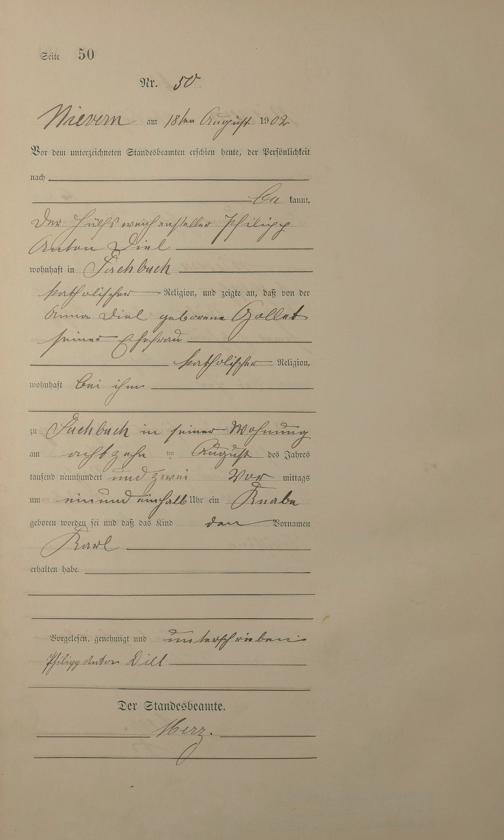 Seite 50
Nr. 50
Nievern am 18ten August 1902
Vor dem unterzeichneten Standesbeamten erschien heute, der Persönlichkeit
nach
be kannt,
der Philipp
Anton Diel
wohnhaft in Fachbach
katholischer Religion, und zeigte an, daß von der
Anna Diel geborene Gollet
seiner Ehefrau
katholischer Religion,
wohnhaft bei ihm
zu Fachbach in seiner Wohnung
am achtzehn ten August des Jahres
tausend neunhundert und zwei Vor mittags
um ein und einhalb Uhr ein Knabe
geboren worden sei und daß das Kind den Vornamen
Karl
erhalten habe.
Vorgelesen, genehmigt und unterschrieben
Philipp Anton Dill
Der Standesbeamte.
Merz.